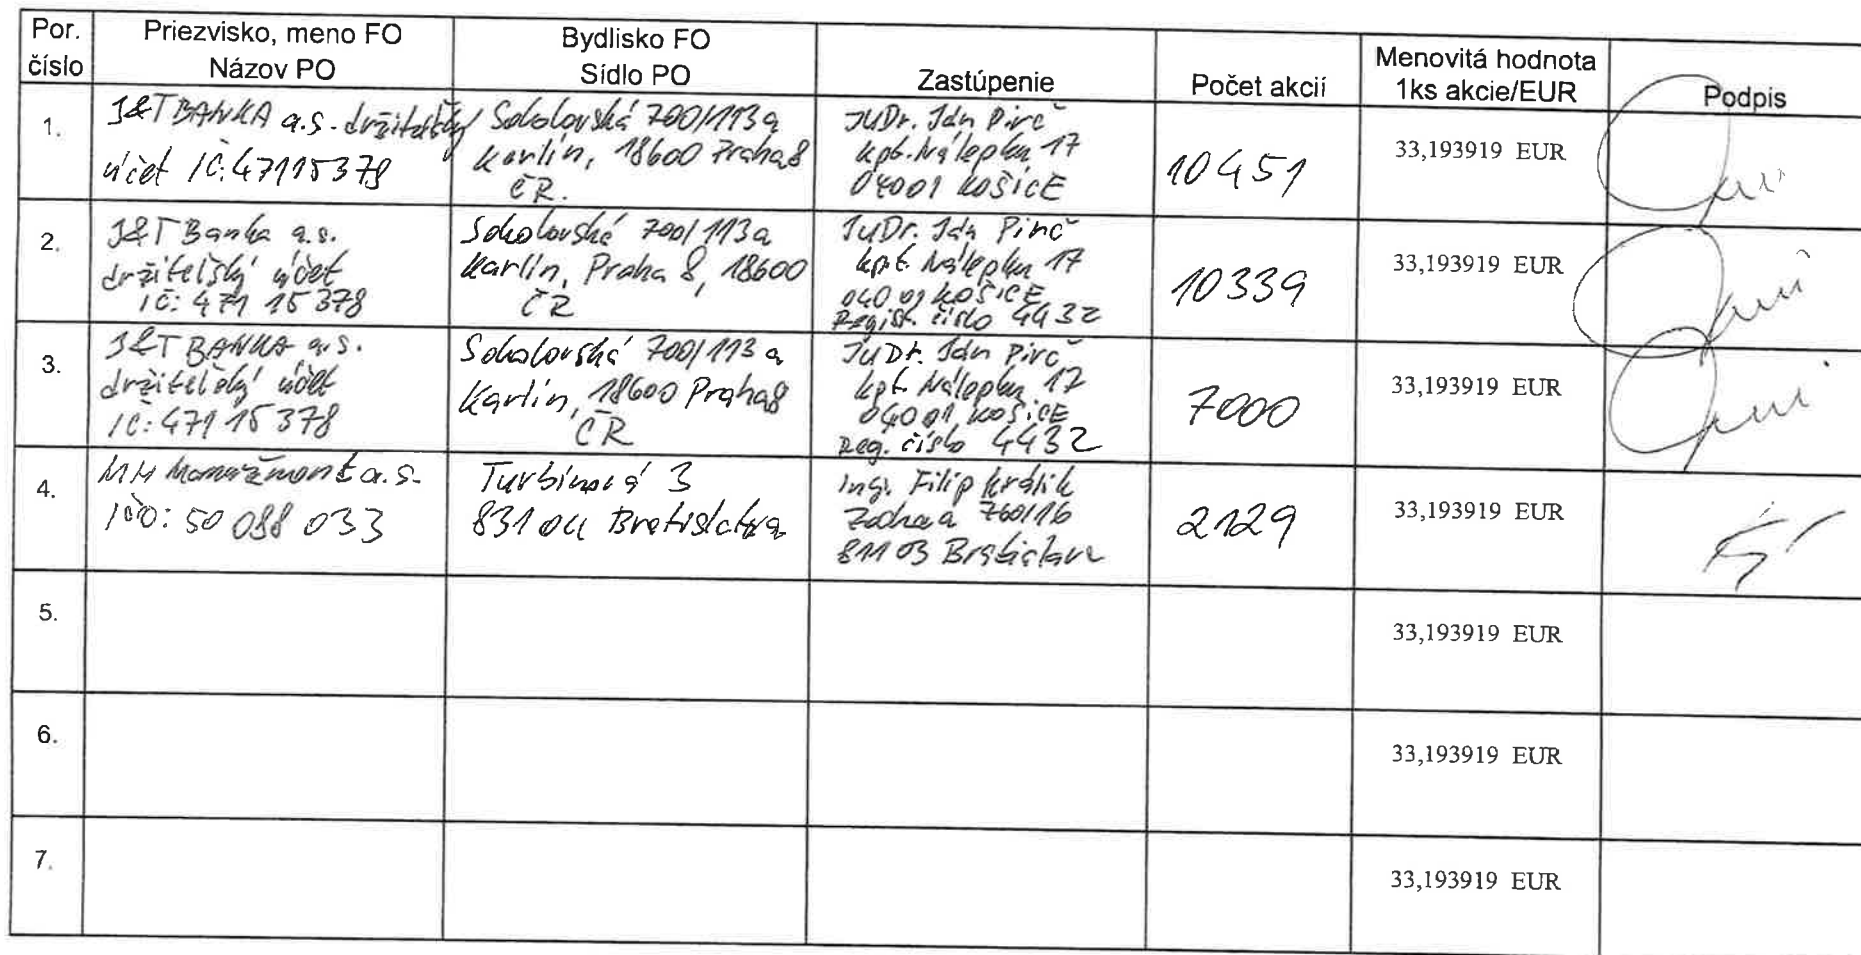 Por. číslo
Priezvisko, meno FO
Názov PO
Bydlisko FO
Sídlo PO
Zastúpenie
Počet akcií
Menovitá hodnota
1ks akcie/EUR
Podpis
1.
J&T BANKA a.s. držiteľský
účet IČ: 47115378
Sokolovská 700/113a
Karlín, 18600 Praha 8
ČR.
JUDr. Ján Pirč
kpt. Nálepku 17
04001 KOŠICE
10451
33,193919 EUR
2.
J&T Banka a.s.
držiteľský účet
IČ: 471 15 378
Sokolovská 700/113a
Karlín, Praha 8, 18600
ČR
JuDr. Ján Pirč
kpt. Nálepku 17
040 01 KOŠICE
Regist. číslo 4432
10339
33,193919 EUR
3.
J&T BANKA a.s.
držiteľský účet
IČ: 471 15 378
Sokolovská 700/113 a
Karlín, 18600 Praha 8
ČR
JuDr. Ján Pirč
kpt. Nálepku 17
04001 KOŠICE
Reg. číslo 4432
7000
33,193919 EUR
4.
MM Manažment a.s.
IČO: 50 088 033
Turbínová 3
831 04 Bratislava
Ing. Filip Králik
760/16
811 03 Bratislava
2129
33,193919 EUR
5.
33,193919 EUR
6.
33,193919 EUR
7.
33,193919 EUR